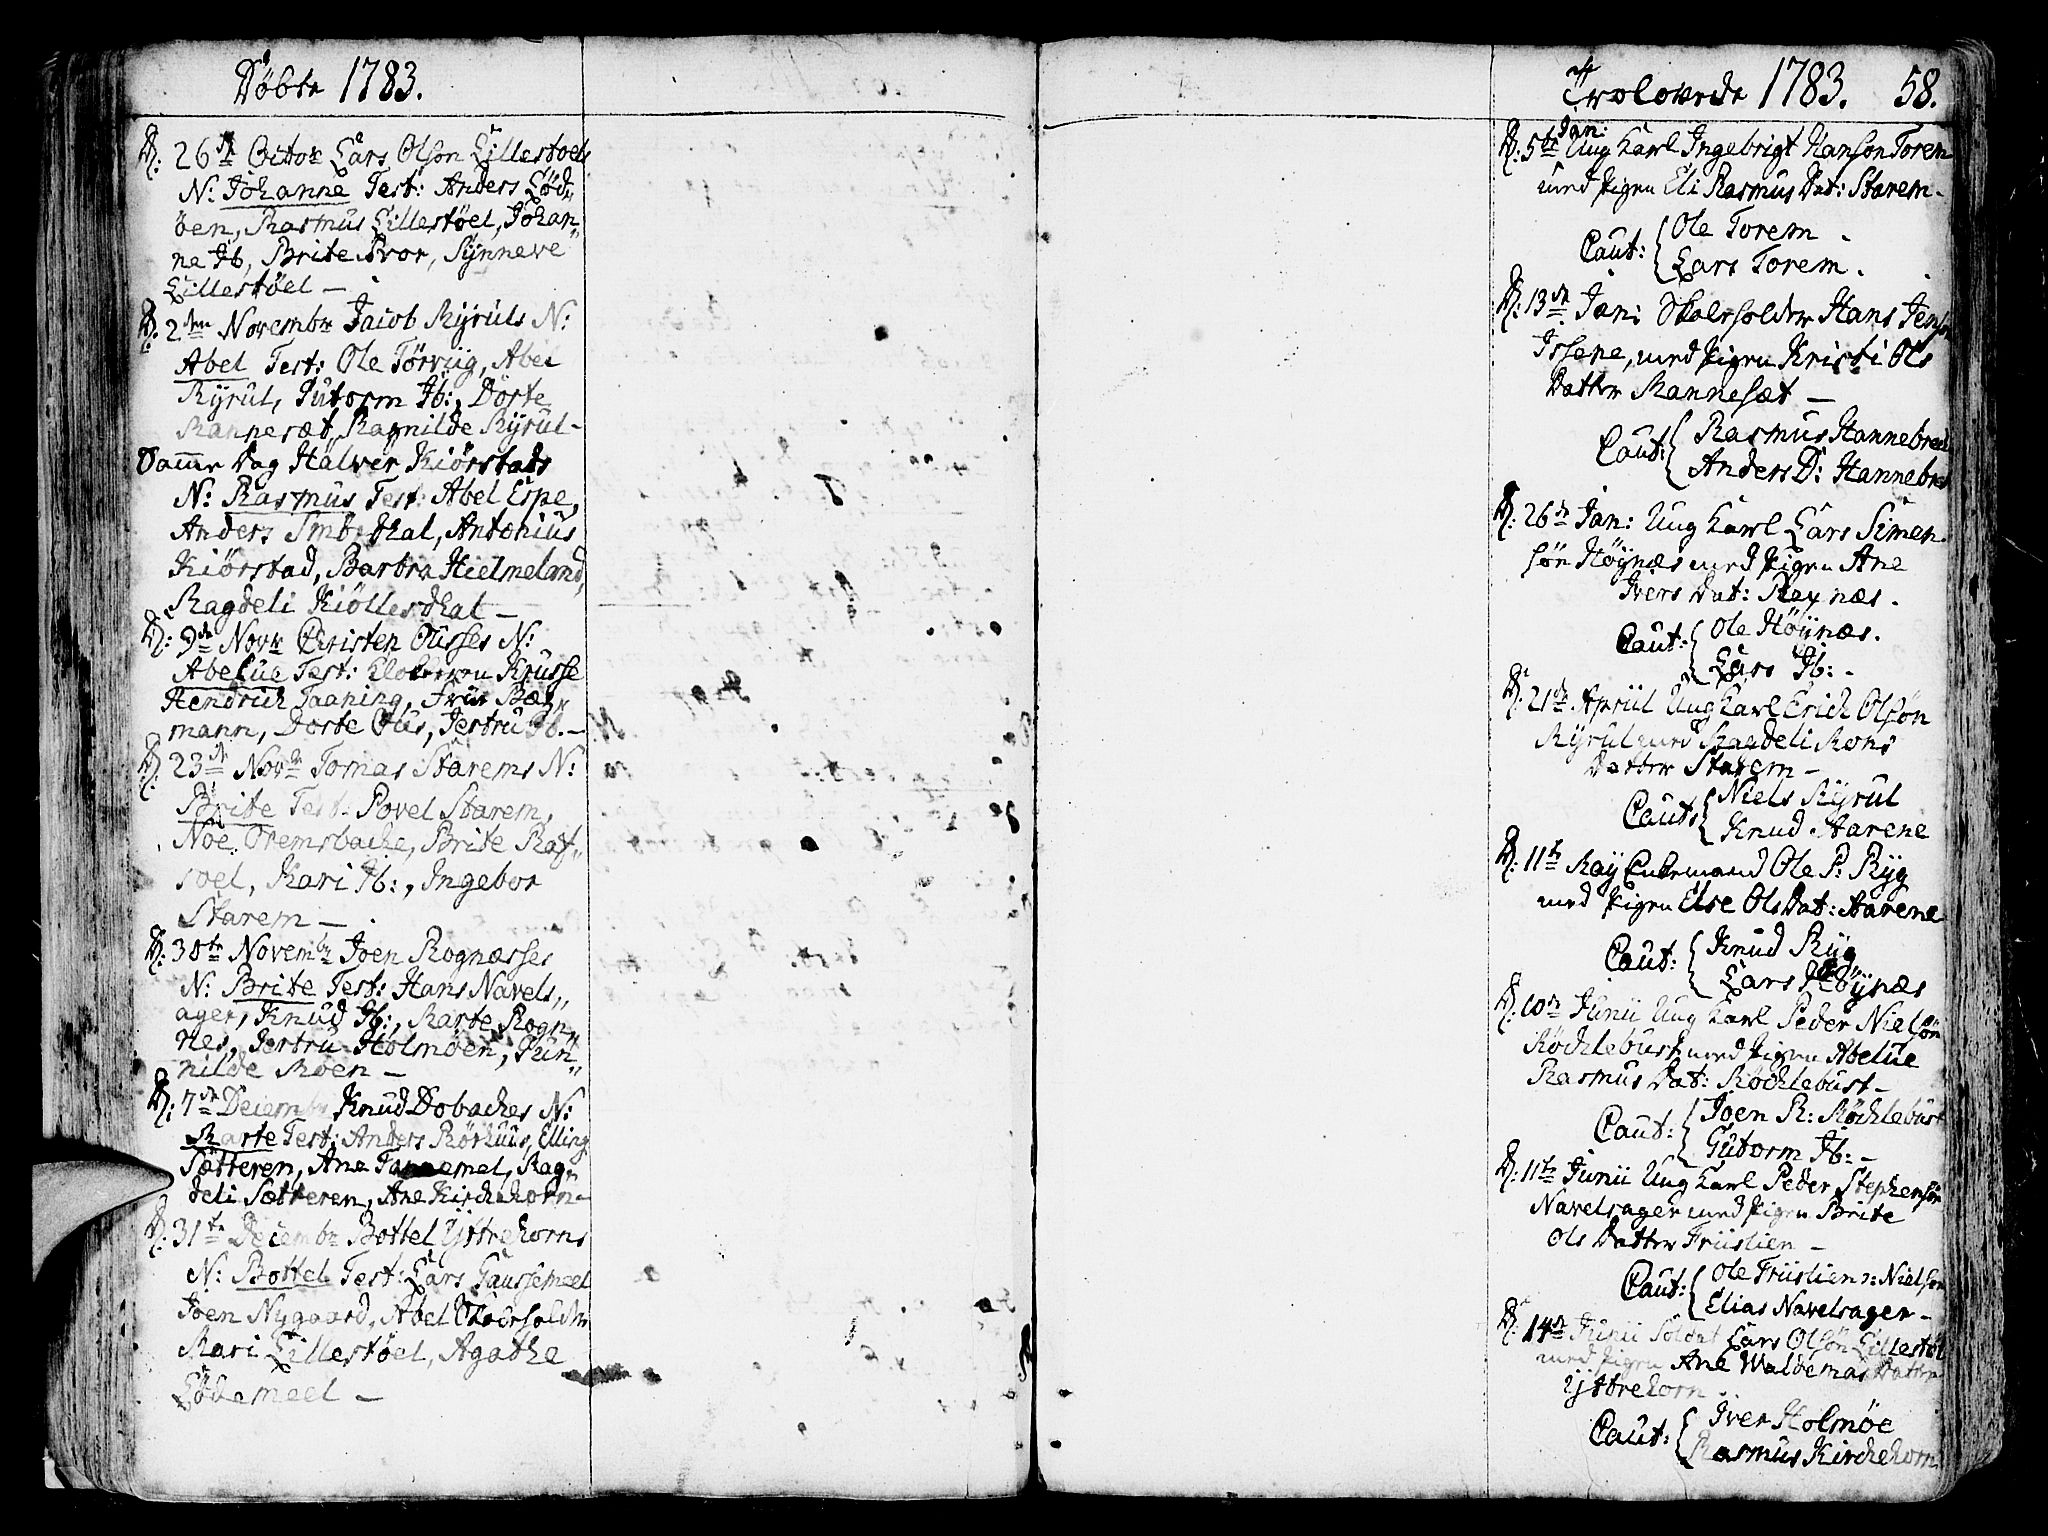 Döbte 1783.
D: 26de Octobr Lars Olson Lillestoels
N: Johanne Test: Anders Löd„
öen, Rasmus Lillestöel, Johan„
ne Ib, Brite Svor, Synneve
Lillestöel —
D: 2den Novembr Jacob Ryruls N:
Abel Test: Ole Törviig, Abel
Ryrul, Gutorm Ib:, Dorte
Rannesæt, Ragnilde Ryrul -
Samme Dag Halver Kiörstads
N: Rasmus Test: Abel Espe,
Anders Smb. dhal, Antonius
Kiörstad, Barbra Hielmeland,
Ragdeli Kiöllesdhal —
D: 9de Novr Christen Ousses N:
Abelue Test: Klokkeren Krusse
Hendrich Taaning, Frue
mann, Dorte Ous, Jertru Ib. -
D: 23de Novbr Tomas Starems N:
Brite Test: Povel Starem,
Noe Oremsbacke, Brite Rot„
soel, Kari Ib:, Ingebor
Starem —
D: 30te Novembr Joen Rognæsses
N: Brite Test: Hans Navels„
ager, Knud Ib:, Marte Rogn„
nes, Jertru Holmöen, Gun„
nilde Moen —
D: 7de Decembr Knud Dobackes N:
Marte Test: Anders Rörhuus, Elling
Sætteren, Ane Tannemel, Rag„
deli Sætteren, Ane Kirckehorn -
D: 31te Decembr Bottel Yttrehorns
N: Bottel Test: Lars Gaussemeel
Joen Nygaard, Abel Skolesholder
Mari Lillestöel, Agathe
Lödemeel —
Trolovede 1783. 58.
D: 5te Jan: Ung Karl Ingebrigt Hanson Torem
med Pigen Eli Rasmus Dat: Starem -
Caut: Ole Torem -
Lars Torem.
D: 13de Jan: Skoleholder Hans Jenson
Issene, med Pigen Kristi Ols
Datter Rannesæt —
Caut: Rasmus Hannebreck
Anders D: Hannebreck
D: 26de Jan: Ung Karl Lars Simen„
sön Höynæs med Pigen Ane
Ivers Dat: Raynæs.
Caut: Ole Höynæs.
Lars Ib: -
D: 21de Apriil Ung Karl Erich Olsön
Ryrul med Ragdeli Mons
Datter Starem —
Caut: Niels Ryrul
Knud Aarene
D: 11te May Enkemand Ole P: Ryg
med Pigen Else Ols Dat: Aarene
Caut: Knud Ryg
Lars Höynæs
D: 10de Junii Ung Karl Peder Nielsön
Röcklebust med Pigen Abelue
Rasmus Dat: Röcklebust -
Caut: Joen R: Röcklebust
Gutorm Ib: -
D: 11te Junii Ung Karl Peder Stephensön
Navelsager med Pigen Brite
Ols Datter Friislien —
Caut: Ole Friislien : Nielsen
Elias Navelsager -
D: 14de Junii Soldat Lars Olsön Lillestöl
med Pigen Ane Waldemas Datter
Yttrehorn
Caut: Iver Holmöe
Rasmus Kirckehorn